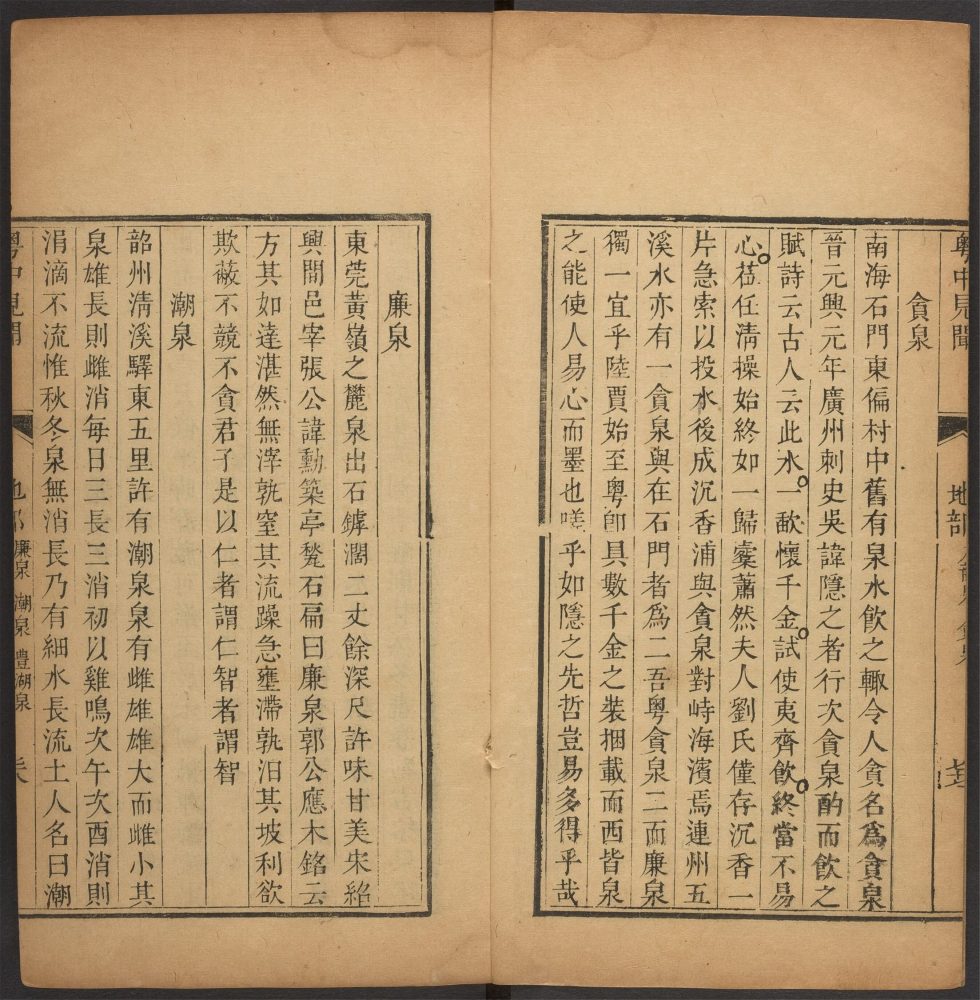 粵中見聞 地部
貪泉
南海石門東偏村中舊有泉水飲之輙令人貪名爲貪泉
晉元興元年廣州刺史吳諱隱之者行次貪泉酌而飲之
賦詩云古人云此水一歃懷千金試使夷齊飲終當不易
心莅任清操始終如一歸橐蕭然夫人劉氏僅存沉香一
片急索以投水後成沉香浦與貪泉對峙海濱焉連州五
溪水亦有一貪泉與在石門者爲二吾粵貪泉二而廉泉
獨一宜乎陸賈始至粵卽具數千金之装捆載而西皆泉
之能使人易心而墨也嗟乎如隱之先哲豈易多得乎哉
廉泉
東莞黃嶺之麓泉出石罅濶二丈餘深尺許味甘美宋紹
興間邑宰張公諱勳築亭甃石扁曰廉泉郭公應木銘云
方其如達湛然無滓孰窒其流躁急壅滯孰汨其坡利欲
欺蔽不競不貪君子是以仁者謂仁智者謂智
潮泉
韶州清溪驛東五里許有潮泉泉有雌雄雄大而雌小其
泉雄長則雌消每日三長三消初以雞鳴次午次酉消則
涓滴不流惟秋冬泉無消長乃有細水長流土人名曰潮
粵中見聞 地部 廉泉 潮泉 豐湖泉